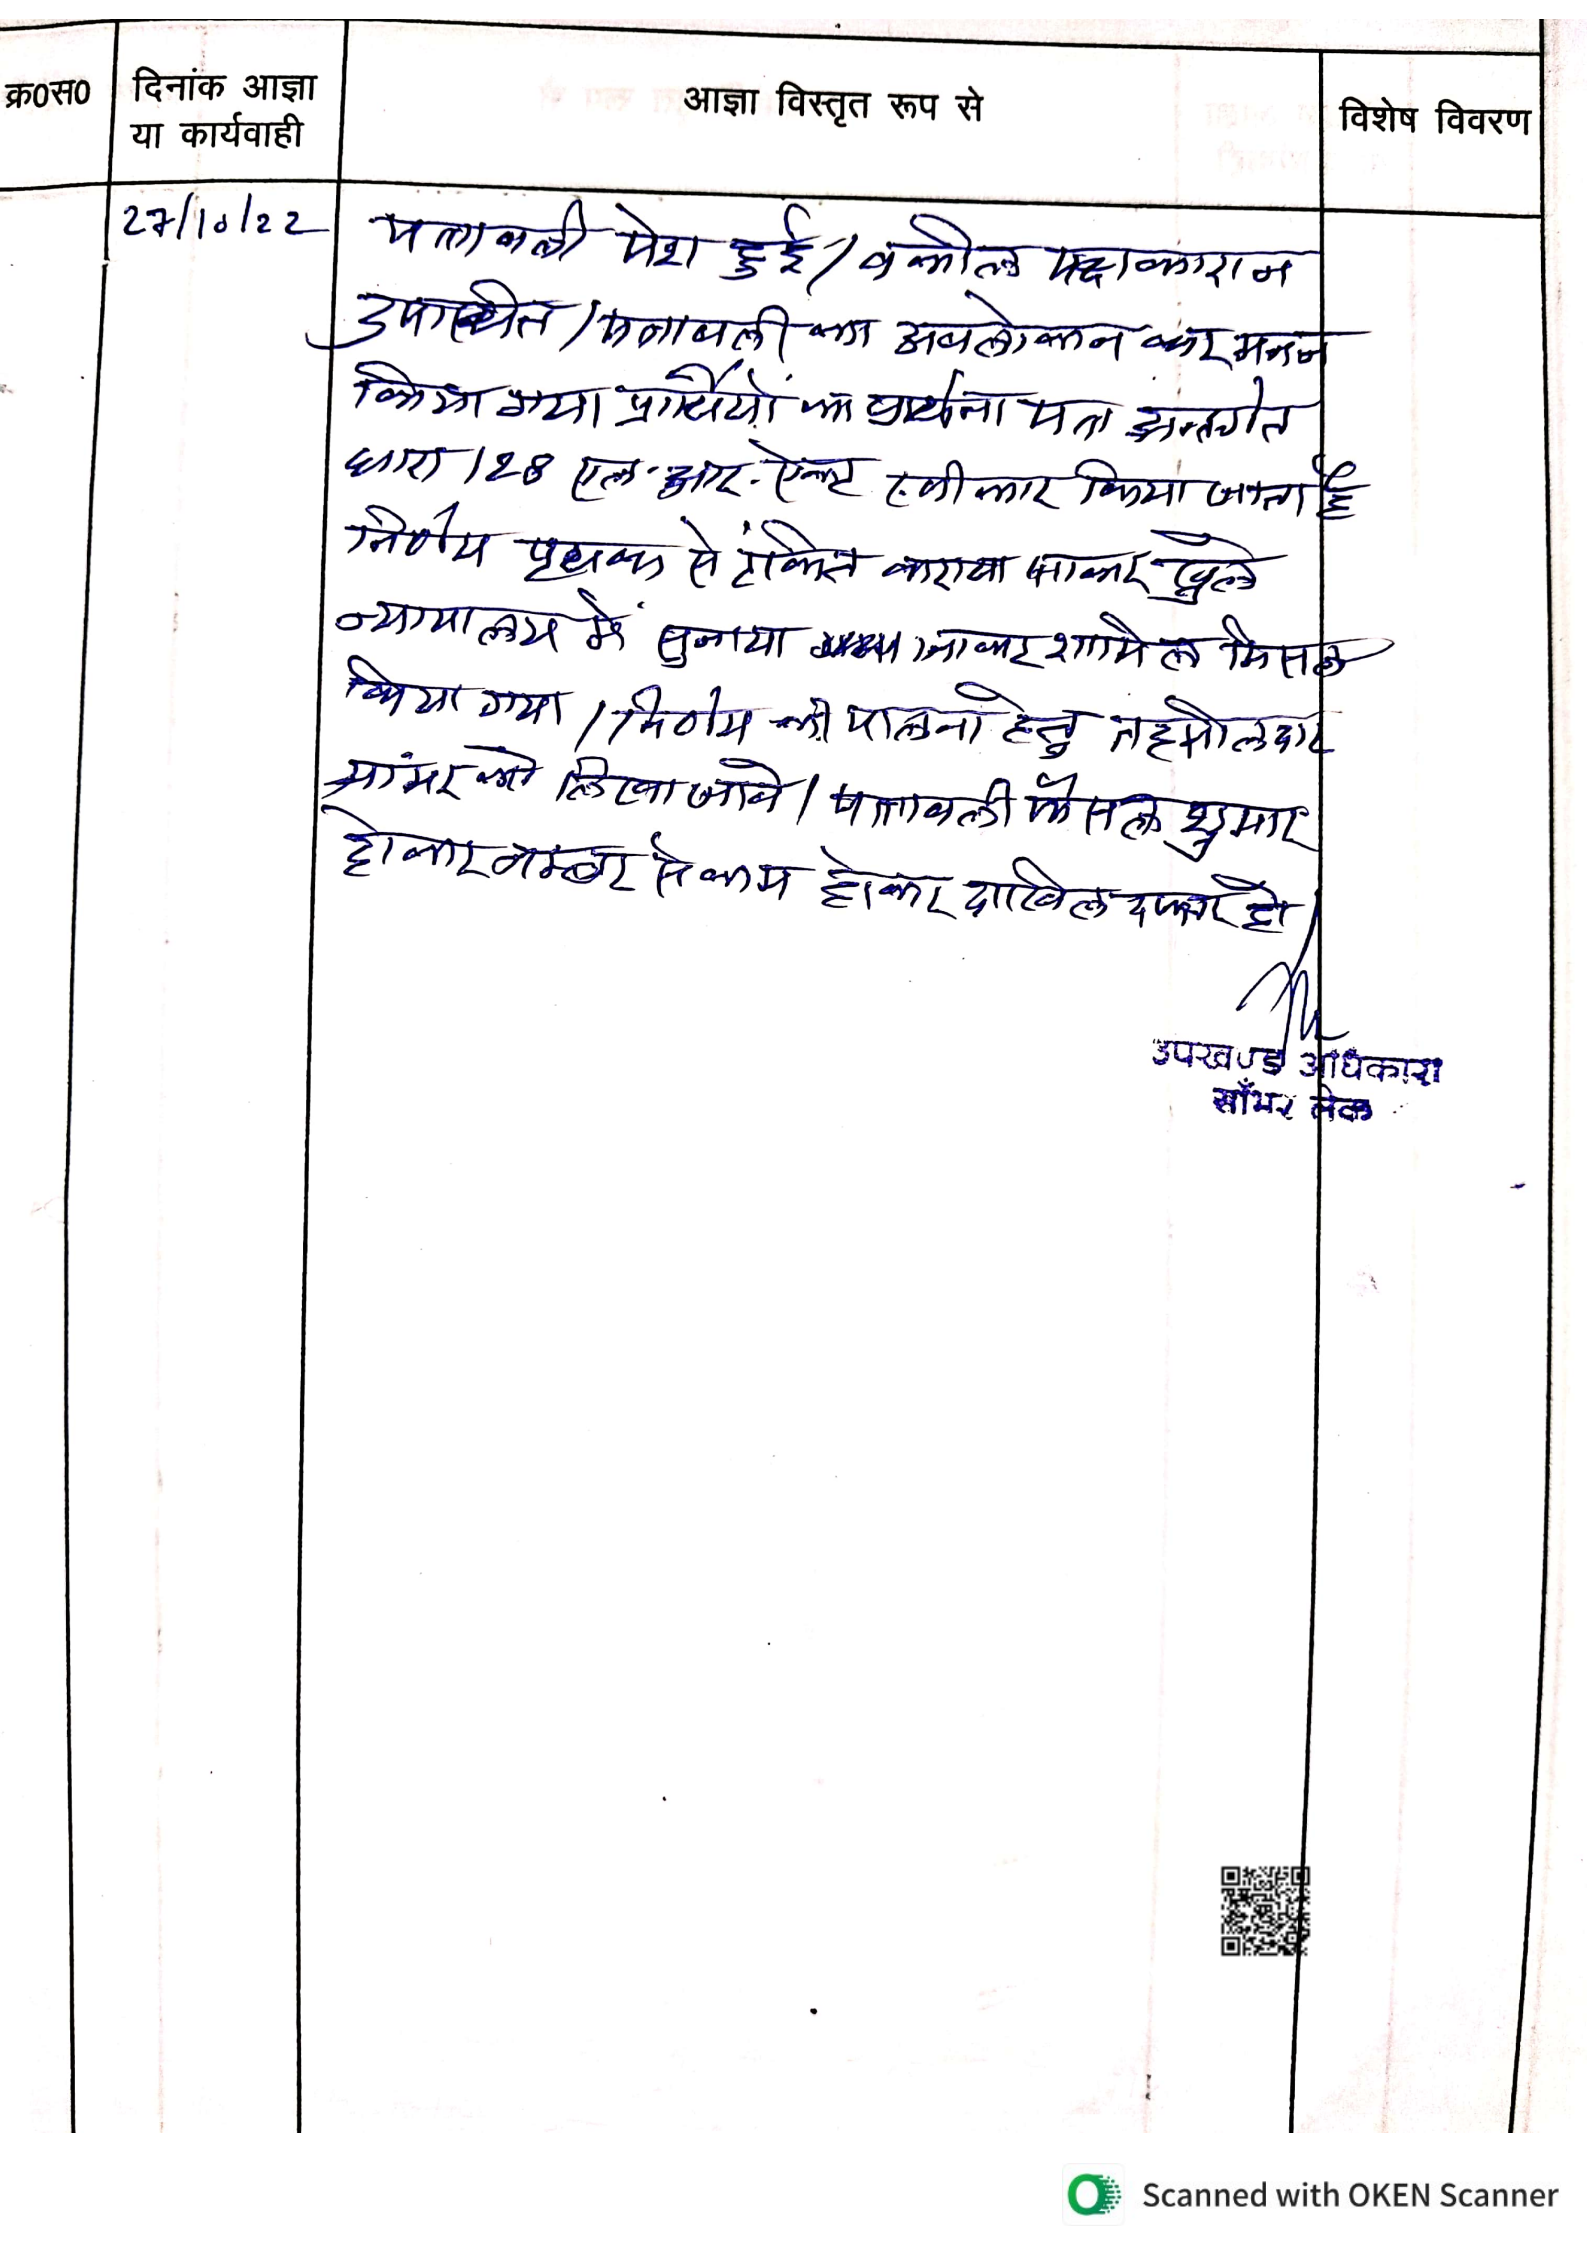 क्र०स० दिनांक आज्ञा या कार्यवाही आज्ञा विस्तृत रूप से विशेष विवरण
27/10/22 पत्रावली पेश हुई / वकील पक्षकारान
उपस्थित / पत्रावली का अवलोकन कर मनन
किया गया। प्रार्थियों का प्रार्थना पत्र अन्तर्गत
धारा 128 एल.आर. ऐक्ट स्वीकार किया जाता है
निर्णय पृथक से टंकित कराया जाकर खुले
न्यायालय में सुनाया जाकर शामिल मिसल
किया गया / निर्णय की पालना हेतु तहसीलदार
सांभर को लिखा जावे / पत्रावली फैसल शुमार
होकर नम्बर से कम होकर दाखिल दफ्तर हो /
उपखण्ड अधिकारी
साँभर लेक
Scanned with OKEN Scanner